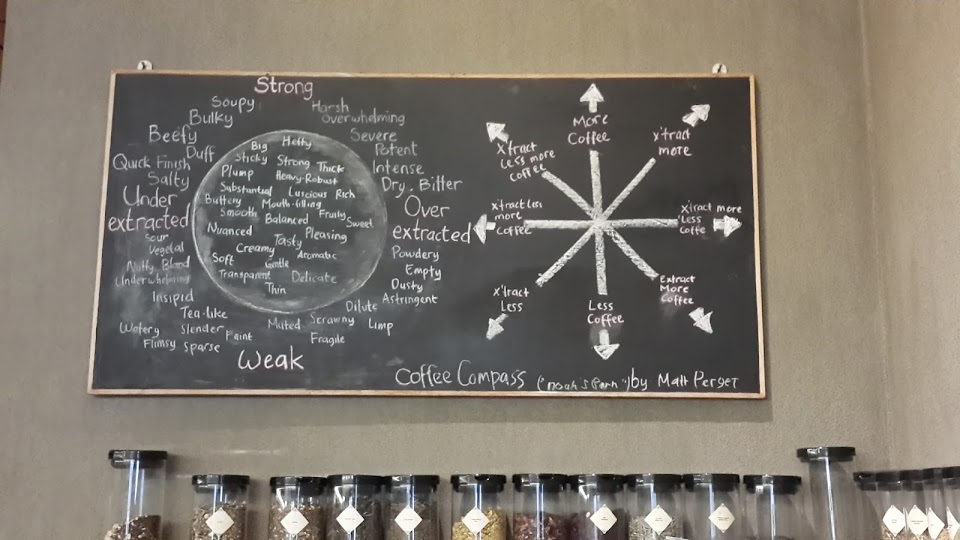 Strong
Soupy
Bulky
Beefy
Duff
Quick Finish
Salty
Under
extracted
Sour
Vegetal
Nutty Bland
Underwhelming
Insipid
Tea-like
Watery Slender Faint
Flimsy Sparse
Weak
Harsh
Overwhelming
Severe
Potent
Intense
Dry. Bitter
Over
extracted
Powdery
Empty
Dusty
Astringent
Dilute
Muted Scrawny Limp
Fragile
Big Hefty
Sticky Strong Thick
Plump Heavy-Robust
Substantial Luscious Rich
Buttery Mouth-filling
Smooth Balanced Fruity Sweet
Nuanced Tasty Pleasing
Creamy Aromatic
Soft Gentle
Transparent Delicate
Thin
More
Coffee
x'tract
more
x'tract more
Less
Coffe
Extract
More
Coffee
Less
Coffee
x'tract
Less
x'tract less
more
Coffee
x'tract
Less more
coffee
Coffee Compass by Matt Perger